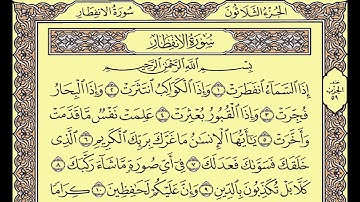 الجزء الثلاثون سورة الانفطار
سورة الانفطار
بسم الله الرحمن الرحيم
إِذَا السَّمَاءُ انفَطَرَتْ ۝١ وَإِذَا الْكَوَاكِبُ انتَثَرَتْ ۝٢ وَإِذَا الْبِحَارُ
فُجِّرَتْ ۝٣ وَإِذَا الْقُبُورُ بُعْثِرَتْ ۝٤ عَلِمَتْ نَفْسٌ مَّا قَدَّمَتْ
وَأَخَّرَتْ ۝٥ يَا أَيُّهَا الْإِنسَانُ مَا غَرَّكَ بِرَبِّكَ الْكَرِيمِ ۝٦ الَّذِي
خَلَقَكَ فَسَوَّاكَ فَعَدَلَكَ ۝٧ فِي أَيِّ صُورَةٍ مَّا شَاءَ رَكَّبَكَ ۝٨
كَلَّا بَلْ تُكَذِّبُونَ بِالدِّينِ ۝٩ وَإِنَّ عَلَيْكُمْ لَحَافِظِينَ ۝١٠ كِرَامًا